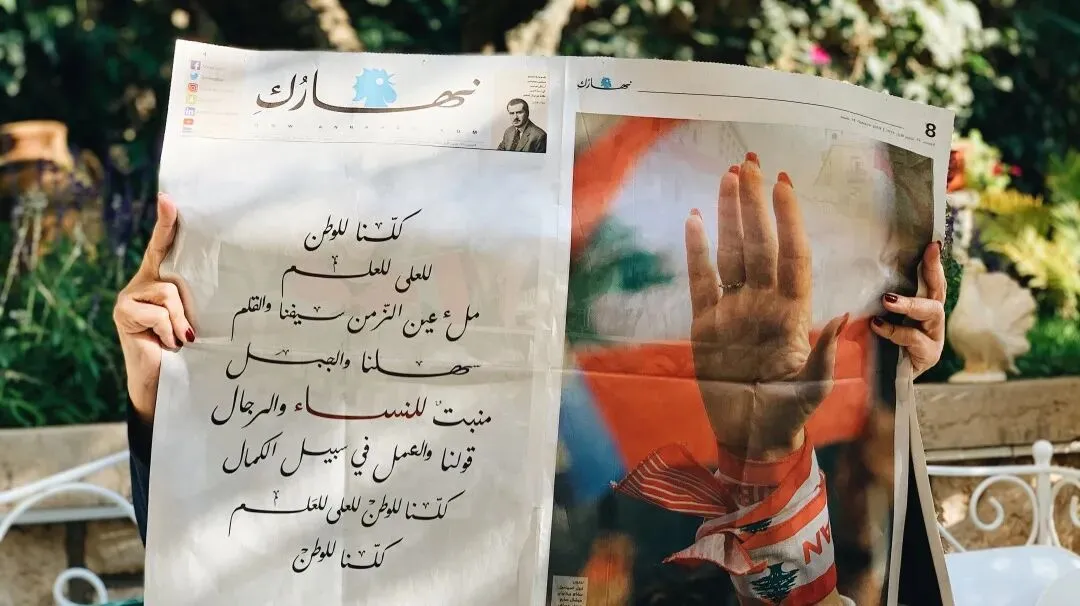 نهارُكِ
كلّنا للوطن
للعلى للعلم
ملء عين الزّمن سيفنا والقلم
سهلنا والجبل
منبتٌ للنساء والرجال
قولنا والعمل في سبيل الكمال
كلّنا للوطن للعلى للعَلم
كلّنا للوطن
نهارُكِ
8